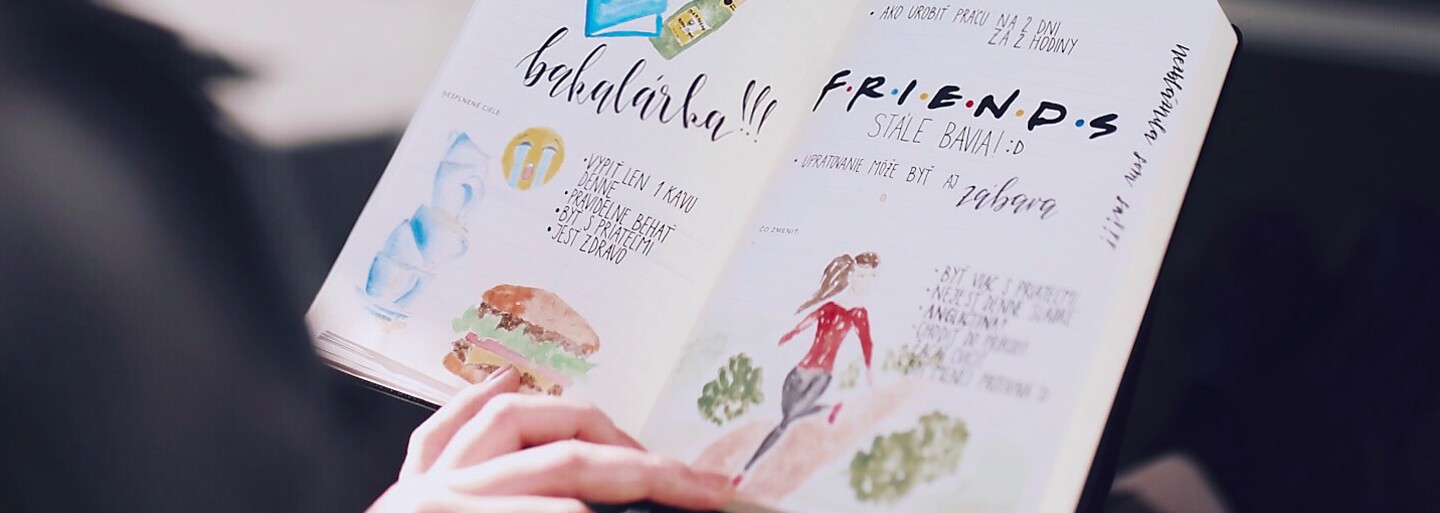 bakalárka!!!
NESPLNENÉ CIELE:
• VYPIŤ LEN 1 KÁVU
DENNE
• PRAVIDELNE BEHAŤ
• BYŤ S PRIATEĽMI
• JESŤ ZDRAVO
• AKO UROBIŤ PRÁCU NA 2 DNI
ZA 2 HODINY
F•R•I•E•N•D•S
STÁLE BAVIA! :D
• UPRATOVANIE MÔŽE BYŤ AJ
zábava
ČO ZMENIŤ:
• BYŤ VIAC S PRIATEĽMI
• NEJESŤ DENNE SLADKÉ
• ANGLIČTINA!
• CHODIŤ DO PRÍRODY
nezbláznila som sa!!!